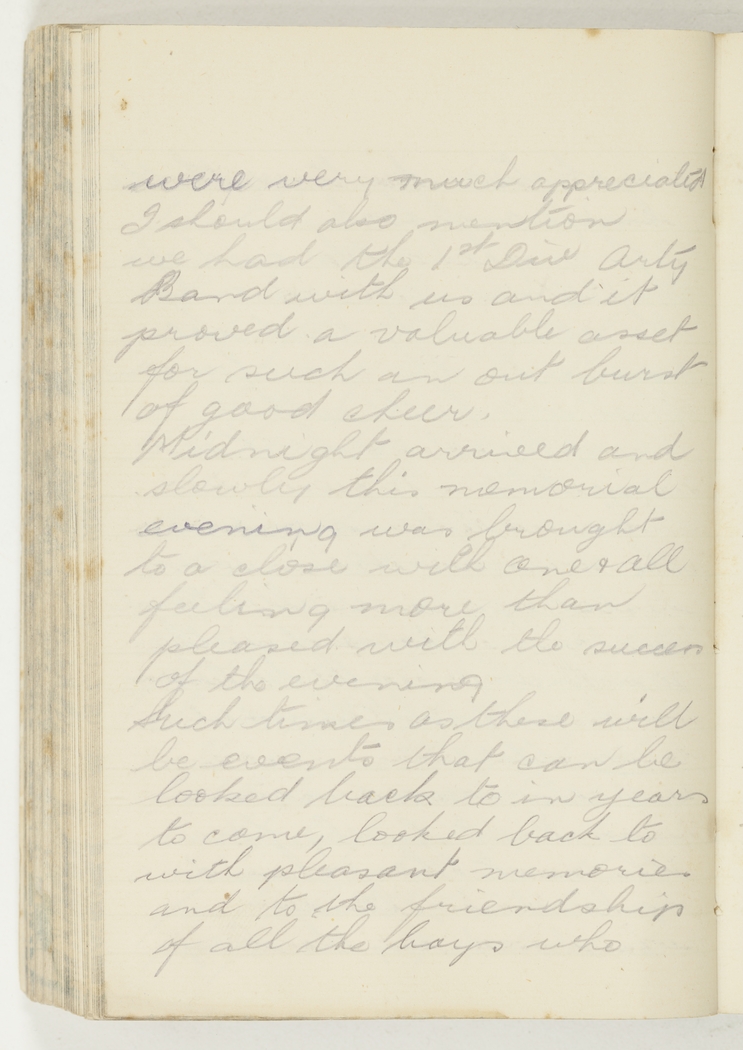 were very much appreciated
I should also mention
we had the 1st Div Arty
Band with us and it
proved a valuable asset
for such an out burst
of good cheer.
Midnight arrived and
slowly this memorial
evening was brought
to a close with one & all
feeling more than
pleased with the success
of the evening
Such times as these will
be events that can be
looked back to in years
to come, looked back to
with pleasant memories
and to the friendship
of all the boys who